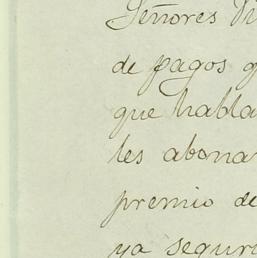 Señores
de pagos
que habla
les abona
premio de
ya segur